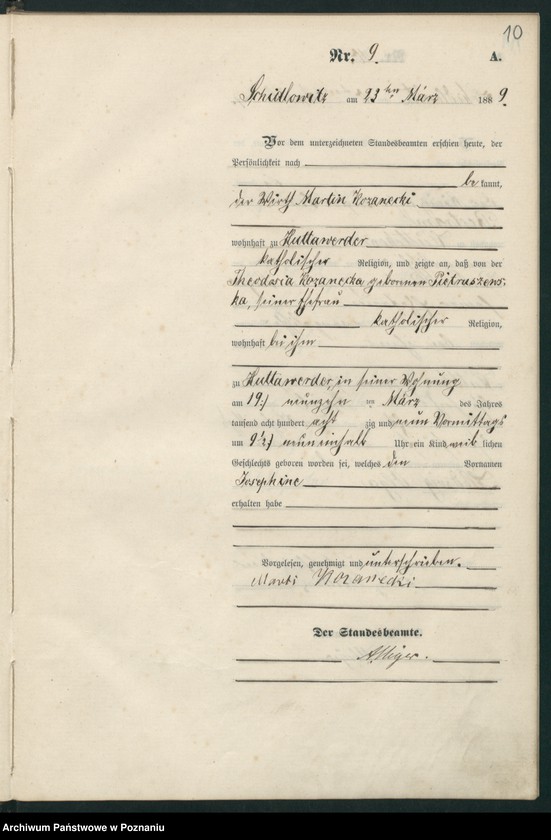 10
Nr. 9. A.
Schidlowitz am 23ten März 1889.
Vor dem unterzeichneten Standesbeamten erschien heute, der
Persönlichkeit nach
be kannt,
der Wirth Martin Kozanecki
wohnhaft zu Huttawerder
katholischer Religion, und zeigte an, daß von der
Theodosia Kozanecka, geborenen Pietruszews-
ka, seiner Ehefrau
katholischer Religion,
wohnhaft bei ihm
zu Huttawerder, in seiner Wohnung
am 19:) neunzehn ten März des Jahres
tausend acht hundert acht zig und neun Vormittags
um 9½) neun einhalb Uhr ein Kind weib lichen
Geschlechts geboren worden sei, welches den Vornamen
Josephine
erhalten habe
Vorgelesen, genehmigt und unterschrieben.
Kozanecki
Der Standesbeamte.
Archiwum Państwowe w Poznaniu